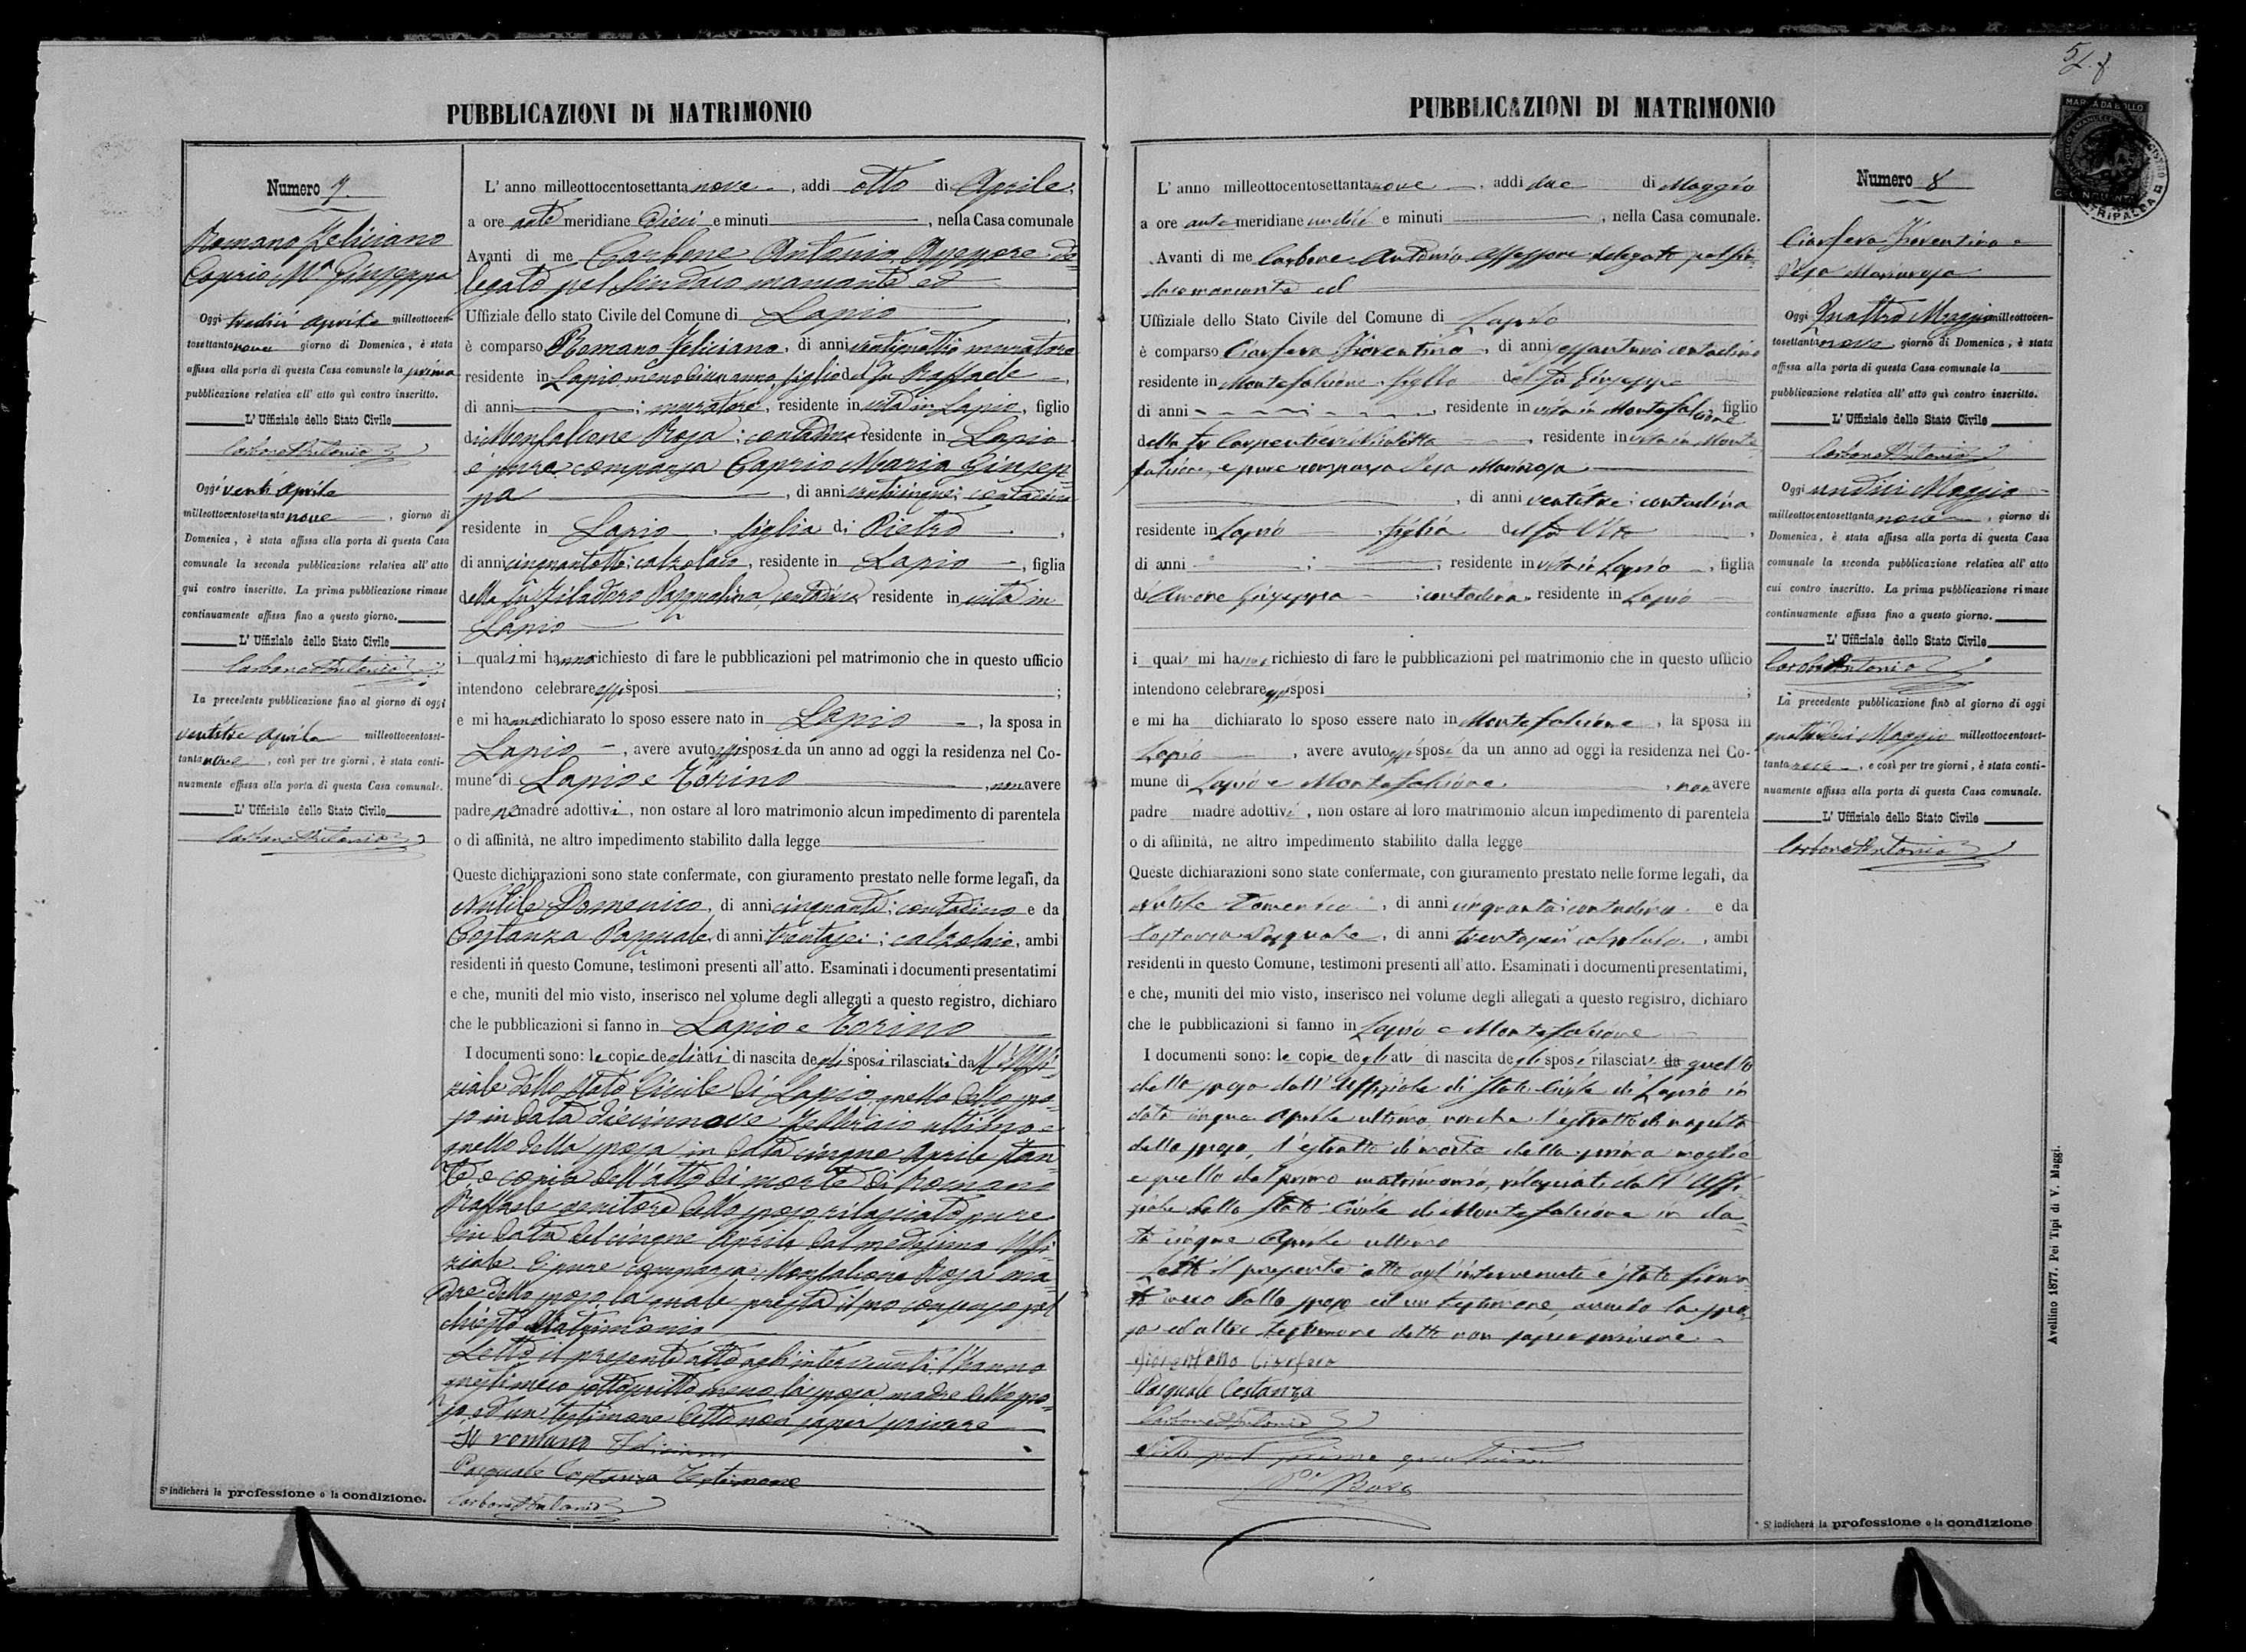 PUBBLICAZIONI DI MATRIMONIO
Numero 7.
Romano Feliciano
Caprio Mª Giuseppa
Oggi tredici Aprile milleottocen-
tosettantanove giorno di Domenica, è stata
affissa alla porta di questa Casa comunale la prima
pubblicazione relativa all' atto quì contro inscritto.
L' Uffiziale dello Stato Civile
Carbone Antonio
Oggi venti Aprile
milleottocentosettantanove, giorno di
Domenica, è stata affissa alla porta di questa Casa
comunale la seconda pubblicazione relativa all' atto
qui contro inscritto. La prima pubblicazione rimase
continuamente affissa fino a questo giorno.
L' Uffiziale dello Stato Civile
Carbone Antonio
La precedente pubblicazione fino al giorno di oggi
ventitre Aprile milleottocentoset-
tantanove, così per tre giorni, è stata conti-
nuamente affissa alla porta di questa Casa comunale.
L' Uffiziale dello Stato Civile
Carbone Antonio
S' indicherà la professione o la condizione.
L' anno milleottocentosettantanove, addi otto di Aprile,
a ore anti meridiane dieci e minuti , nella Casa comunale
Avanti di me Carbone Antonio Assessore de-
legato pel Sindaco mancante ed
Uffiziale dello stato Civile del Comune di Lapio
è comparso Romano Feliciano, di anni ventinotto muratore
residente in Lapio meno di un anno, figlio del fu Raffaele
di anni ; muratore, residente in vita in Lapio, figlio
di Monfalcone Rosa; contadina residente in Lapio
è pure comparsa Caprio Maria Giusep
pa , di anni venticinque; contadina
residente in Lapio, figlia di Pietro,
di anni cinquantotto; calzolaio, residente in Lapio, figlia
della fu Filadoro Pasqualina, contadina residente in vita in
Lapio
i quali mi hanno richiesto di fare le pubblicazioni pel matrimonio che in questo ufficio
intendono celebrare essi sposi ;
e mi hanno dichiarato lo sposo essere nato in Lapio, la sposa in
Lapio, avere avuto essi sposi da un anno ad oggi la residenza nel Co-
mune di Lapio e Torino, non avere
padre nè madre adottivi, non ostare al loro matrimonio alcun impedimento di parentela
o di affinità, ne altro impedimento stabilito dalla legge
Queste dichiarazioni sono state confermate, con giuramento prestato nelle forme legali, da
Nutile Domenico, di anni cinquanta; contadino e da
Costanza Pasquale, di anni trentasei; calzolaio, ambi
residenti in questo Comune, testimoni presenti all'atto. Esaminati i documenti presentatimi
e che, muniti del mio visto, inserisco nel volume degli allegati a questo registro, dichiaro
che le pubblicazioni si fanno in Lapio e Torino
I documenti sono: le copie degli atti di nascita degli sposi rilasciati dall'Uffi-
ziale dello Stato Civile di Lapio, quello dello spo-
so in data diecinnove Febbraio ultimo e
quello della sposa in data cinque Aprile stan-
te, e copia dell'atto di morte di Romano
Raffaele genitore dello sposo rilasciato pure
in data del cinque Aprile dal medesimo Uffi-
ziale. È pure comparsa Monfalcone Rosa ma-
dre dello sposo la quale presta il suo consenso pel
chiesto Matrimonio
Letto il presente atto agl'intervenuti, l'hanno
questi meco sottoscritto meno la sposa, madre dello spo-
so, ed un testimone detto non saper scrivere
Io romano Feliciano
Pasquale Costanza Testimone
Carbone Antonio
PUBBLICAZIONI DI MATRIMONIO
MARCA DA BOLLO
L' anno milleottocentosettantanove, addi due di Maggio
a ore ante meridiane undici e minuti , nella Casa comunale.
Avanti di me Carbone Antonio Assessore delegato pel Sin-
daco mancante ed
Uffiziale dello Stato Civile del Comune di Lapio
è comparso Ciarfera Fiorentino, di anni sessantuno contadino
residente in Montefalcione, figlio del fu Giuseppe
di anni , residente in vita in Montefalcione figlio
della fu Carpentieri Nicoletta , residente in vita in Monte
falcione, e pure comparsa Pesa Mariarosa
, di anni ventitre; contadina
residente in Lapio, figlia del fu Vito,
di anni ; , residente in vita in Lapio, figlia
di Amore Giuseppa ; contadina residente in Lapio
i quali mi hanno richiesto di fare le pubblicazioni pel matrimonio che in questo ufficio
intendono celebrare essi sposi ;
e mi ha dichiarato lo sposo essere nato in Montefalcione, la sposa in
Lapio, avere avuto essi sposi da un anno ad oggi la residenza nel Co-
mune di Lapio e Montefalcione, non avere
padre madre adottivi, non ostare al loro matrimonio alcun impedimento di parentela
o di affinità, ne altro impedimento stabilito dalla legge
Queste dichiarazioni sono state confermate, con giuramento prestato nelle forme legali, da
Nutile Domenico, di anni cinquanta; contadino e da
Costanza Pasquale, di anni trentasei calzolaio, ambi
residenti in questo Comune, testimoni presenti all'atto. Esaminati i documenti presentatimi,
e che, muniti del mio visto, inserisco nel volume degli allegati a questo registro, dichiaro
che le pubblicazioni si fanno in Lapio e Montefalcione
I documenti sono: le copie degli atti di nascita degli sposi rilasciati da quello
della sposa dall'Uffiziale di Stato Civile di Lapio in
data cinque Aprile ultimo, nonche l'estratto di nascita
dello sposo, l'estratto di morte della prima moglie
e quello del primo matrimonio, rilasciati dall'Uffi-
ziale dello Stato Civile di Montefalcione in da-
ta cinque Aprile ultimo
Letto il presente atto agl'intervenuti è stato firma-
to meco dallo sposo ed un testimone, avendo la spo-
sa ed altro testimone detto non saper scrivere.
Fiorentino Ciarfera
Pasquale Costanza
Carbone Antonio
Numero 8
Ciarfera Fiorentino e
Pesa Mariarosa
Oggi Quattro Maggio milleottocen-
tosettantanove, giorno di Domenica, è stata
affissa alla porta di questa Casa comunale la
pubblicazione relativa all' atto quì contro inscritto.
L' Uffiziale dello Stato Civile
Carbone Antonio
Oggi undici Maggio
milleottocentosettantanove, giorno di
Domenica, è stata affissa alla porta di questa Casa
comunale la seconda pubblicazione relativa all' atto
cui contro inscritto. La prima pubblicazione rimase
continuamente affissa fino a questo giorno.
L' Uffiziale dello Stato Civile
Carbone Antonio
La precedente pubblicazione fino al giorno di oggi
quattordici Maggio milleottocentoset-
tantanove, e così per tre giorni, è stata conti-
nuamente affissa alla porta di questa Casa comunale.
L' Uffiziale dello Stato Civile
Carbone Antonio
* S' indicherà la professione o la condizione
Avellino 1877. Pei Tipi di V. Maggi.